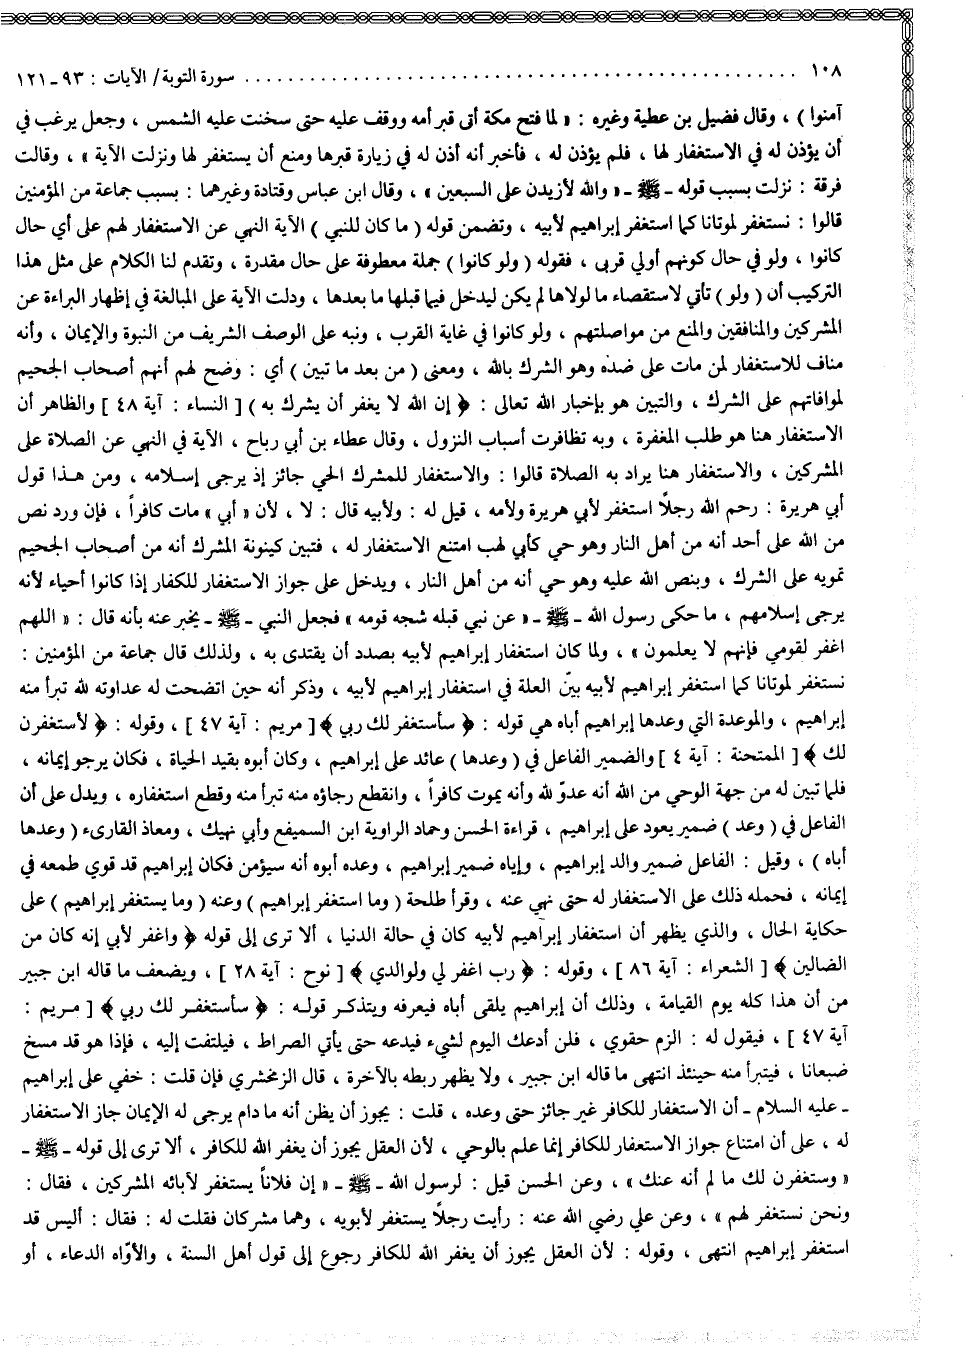 ١٠٨ . . . . . . . . . . . . . . . . . . . . . . . . . . . . . . . . . . . . . . . . سورة التوبة/ الآيات : ٩٣ ـ ١٢١
آمنوا ) ، وقال فضيل بن عطية وغيره : « لما فتح مكة أتى قبر أمه ووقف عليه حتى سخنت عليه الشمس ، وجعل يرغب في
أن يؤذن له في الاستغفار لها ، فلم يؤذن له ، فأخبر أنه أذن له في زيارة قبرها ومنع أن يستغفر لها ونزلت الآية » ، وقالت
فرقة : نزلت بسبب قوله ـ ﷺ ـ « والله لأزيدن على السبعين » ، وقال ابن عباس وقتادة وغيرهما : بسبب جماعة من المؤمنين
قالوا : نستغفر لموتانا كما استغفر إبراهيم لأبيه ، وتضمن قوله ( ما كان للنبي ) الآية النهي عن الاستغفار لهم على أي حال
كانوا ، ولو في حال كونهم أولي قربى ، فقوله ( ولو كانوا ) جملة معطوفة على حال مقدرة ، وتقدم لنا الكلام على مثل هذا
التركيب أن ( ولو ) تأتي لاستقصاء ما لولاها لم يكن ليدخل فيما قبلها ما بعدها ، ودلت الآية على المبالغة في إظهار البراءة عن
المشركين والمنافقين والمنع من مواصلتهم ، ولو كانوا في غاية القرب ، ونبه على الوصف الشريف من النبوة والإيمان ، وأنه
مناف للاستغفار لمن مات على ضده وهو الشرك بالله ، ومعنى ( من بعد ما تبين ) أي : وضح لهم أنهم أصحاب الجحيم
لموافاتهم على الشرك ، والتبين هو بإخبار الله تعالى : ﴿ إن الله لا يغفر أن يشرك به ) [ النساء : آية ٤٨ ] والظاهر أن
الاستغفار هنا هو طلب المغفرة ، وبه تظافرت أسباب النزول ، وقال عطاء بن أبي رباح ، الآية في النهي عن الصلاة على
المشركين ، والاستغفار هنا يراد به الصلاة قالوا : والاستغفار للمشرك الحي جائز إذ يرجى إسلامه ، ومن هذا قول
أبي هريرة : رحم الله رجلاً استغفر لأبي هريرة ولأمه ، قيل له : ولأبيه قال : لا ، لأن « أبي » مات كافراً ، فإن ورد نص
من الله على أحد أنه من أهل النار وهو حي كأبي لهب امتنع الاستغفار له ، فتبين كينونة المشرك أنه من أصحاب الجحيم
تمويه على الشرك ، وبنص الله عليه وهو حي أنه من أهل النار ، ويدخل على جواز الاستغفار للكفار إذا كانوا أحياء لأنه
يرجى إسلامهم ، ما حكى رسول الله ـ ﷺ ـ « عن نبي قبله شجه قومه » فجعل النبي ـ ﷺ ـ يخبر عنه بأنه قال : « اللهم
اغفر لقومي فإنهم لا يعلمون » ، ولما كان استغفار إبراهيم لأبيه بصدد أن يقتدى به ، ولذلك قال جماعة من المؤمنين :
نستغفر لموتانا كما استغفر إبراهيم لأبيه بيّن العلة في استغفار إبراهيم لأبيه ، وذكر أنه حين اتضحت له عداوته لله تبرأ منه
إبراهيم ، والموعدة التي وعدها إبراهيم أباه هي قوله : ﴿ سأستغفر لك ربي ﴾ [ مريم : آية ٤٧ ] ، وقوله : ﴿ لأستغفرن
لك ﴾ [ الممتحنة : آية ٤ ] والضمير الفاعل في ( وعدها ) عائد على إبراهيم ، وكان أبوه بقيد الحياة ، فكان يرجو إيمانه ،
فلما تبين له من جهة الوحي من الله أنه عدوّ لله وأنه يموت كافراً ، وانقطع رجاؤه منه تبرأ منه وقطع استغفاره ، ويدل على أن
الفاعل في ( وعد ) ضمير يعود على إبراهيم ، قراءة الحسن وحماد الراوية ابن السميفع وأبي نهيك ، ومعاذ القارىء ( وعدها
أباه ) ، وقيل : الفاعل ضمير والد إبراهيم ، وإياه ضمير إبراهيم ، وعده أبوه أنه سيؤمن فكان إبراهيم قد قوي طمعه في
إيمانه ، فحمله ذلك على الاستغفار له حتى نهي عنه ، وقرأ طلحة ( وما استغفر إبراهيم ) وعنه ( وما يستغفر إبراهيم ) على
حكاية الحال ، والذي يظهر أن استغفار إبراهيم لأبيه كان في حالة الدنيا ، ألا ترى إلى قوله ﴿ واغفر لأبي إنه كان من
الضالين ﴾ [ الشعراء : آية ٨٦ ] ، وقوله : ﴿ رب اغفر لي ولوالدي ﴾ [ نوح : آية ٢٨ ] ، ويضعف ما قاله ابن جبير
من أن هذا كله يوم القيامة ، وذلك أن إبراهيم يلقى أباه فيعرفه ويتذكر قوله : ﴿ سأستغفر لك ربي ﴾ [ مريم :
آية ٤٧ ] ، فيقول له : الزم حقوي ، فلن أدعك اليوم لشيء فيدعه حتى يأتي الصراط ، فيلتفت إليه ، فإذا هو قد مسخ
ضبعانا ، فيتبرأ منه حينئذ انتهى ما قاله ابن جبير ، ولا يظهر ربطه بالآخرة ، قال الزمخشري فإن قلت : خفي على إبراهيم
ـ عليه السلام ـ أن الاستغفار للكافر غير جائز حتى وعده ، قلت : يجوز أن يظن أنه ما دام يرجى له الإيمان جاز الاستغفار
له ، على أن امتناع جواز الاستعفار للكافر إنما علم بالوحي ، لأن العقل يجوز أن يغفر الله للكافر ، ألا ترى إلى قوله ـ ﷺ ـ
« وستغفرن لك ما لم أنه عنك » ، وعن الحسن قيل : لرسول الله ـ ﷺ ـ « إن فلاناً يستغفر لآبائه المشركين ، فقال :
ونحن نستغفر لهم » ، وعن علي رضي الله عنه : رأيت رجلاً يستغفر لأبويه ، وهما مشركان فقلت له : فقال : أليس قد
استغفر إبراهيم انتهى ، وقوله : لأن العقل يجوز أن يغفر الله للكافر رجوع إلى قول أهل السنة ، والأوّاه الدعاء ، أو